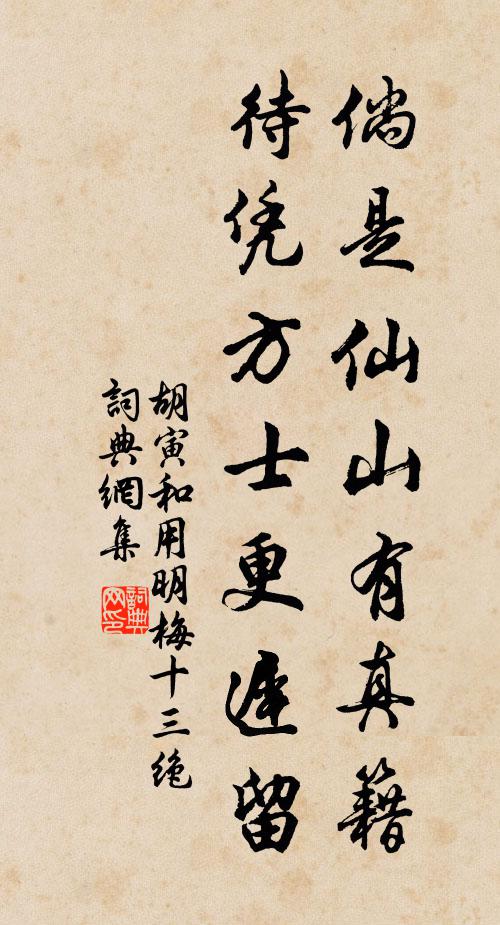 倘是仙山有真籍
待凭方士更遲留
胡寅和用明梅十三绝
詞典網集
詞典网印